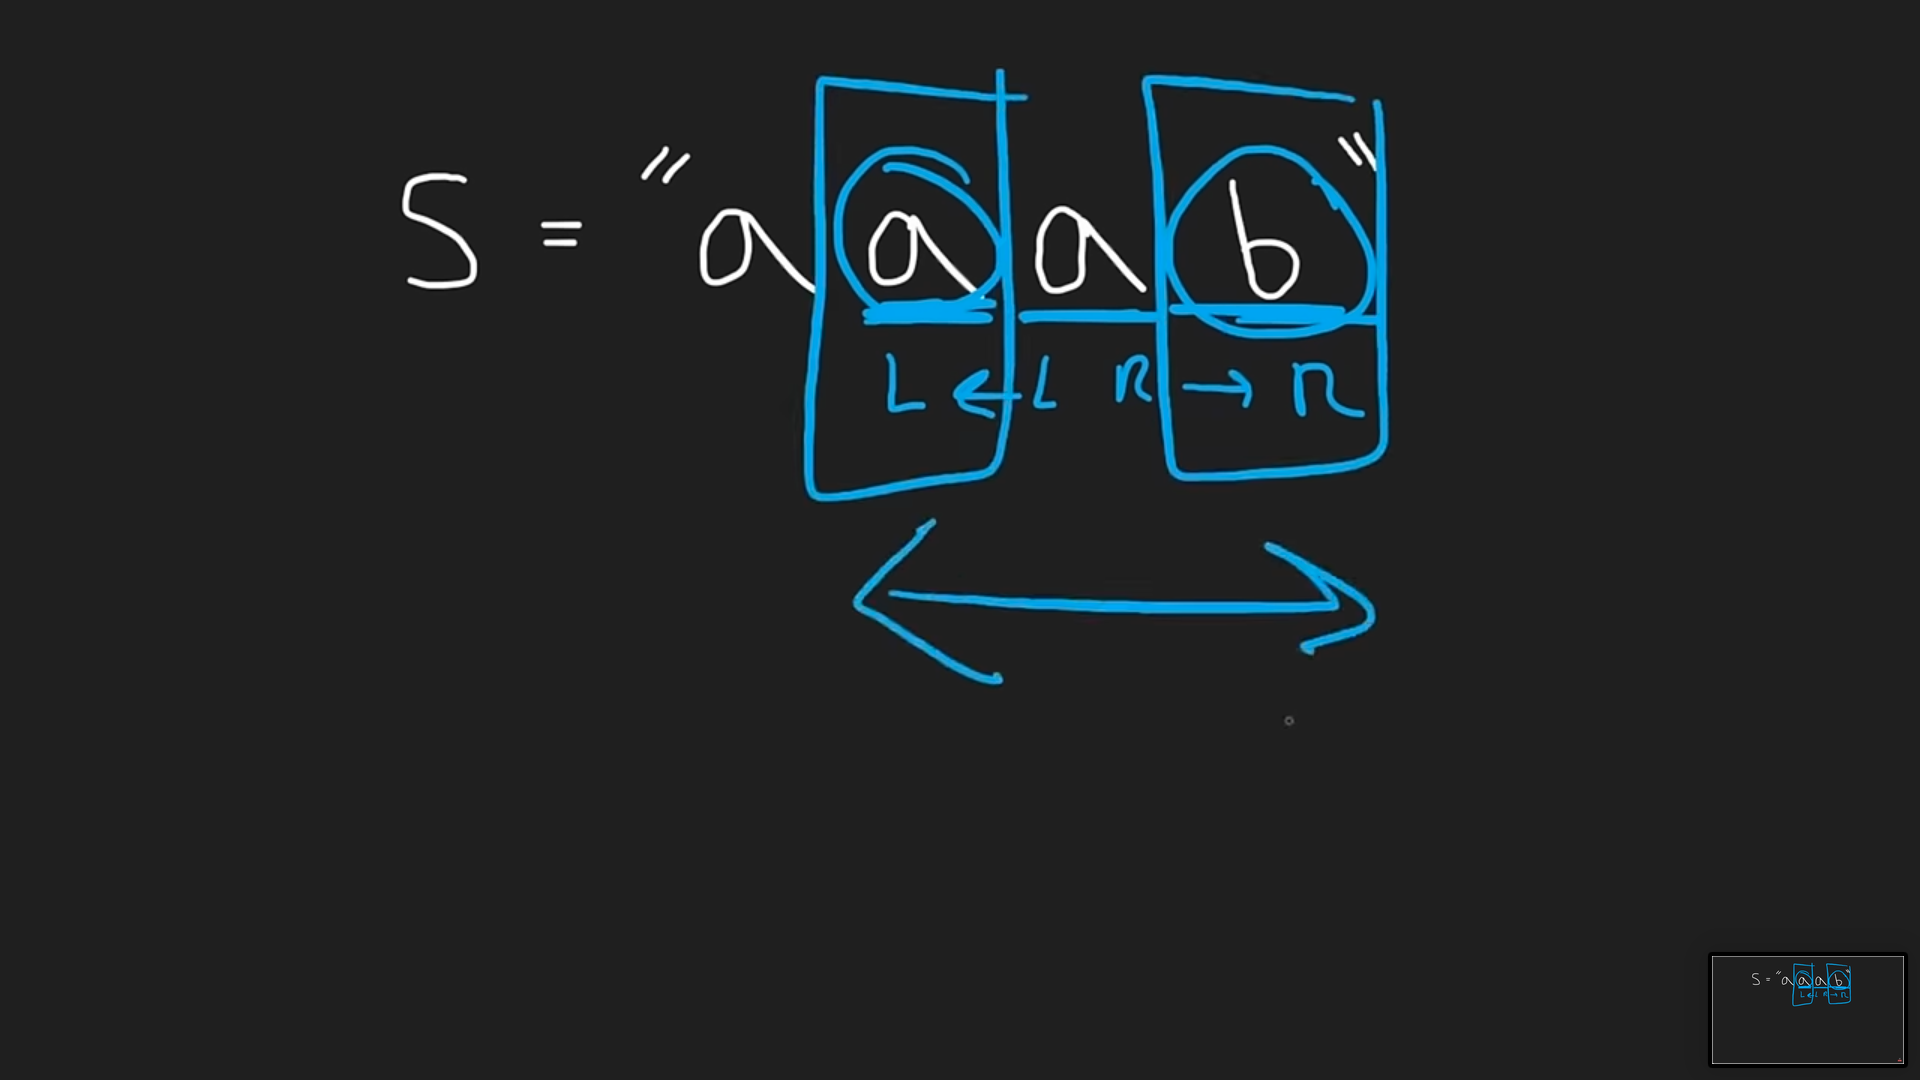 S = "aaab"
L ← L R → R
S = "aaab"
L ← L R → R